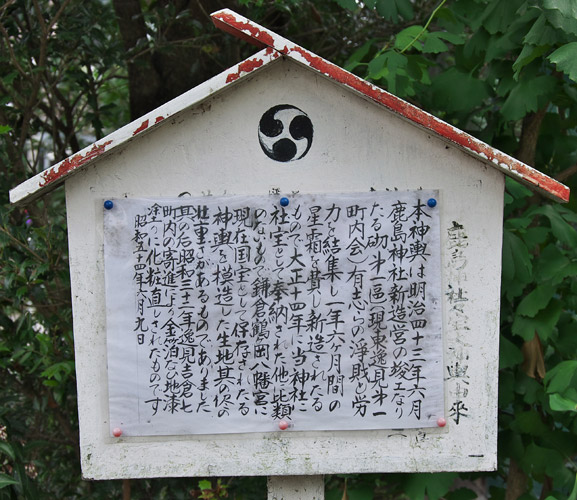 本神輿は明治四十三年六月
鹿島神社新造営の竣工なり
たる砌㐧一區(現東逸見㐧一
町内会)有志らの浄財と労
力を結集し一年六ヶ月間の
星霜を費し新造されたる
もので大正十四年に当神社に
社宝として奉納された他比類
のない
鎌倉鶴ヶ岡八幡宮に
現在国宝として保存されたる
神輿を模造した生地其の侭の
荘重さがあるものでありました
其の后昭和三十二年逸見吉倉七
町内の寄進により金箔ない地漆
塗に化粧直しされたものです
昭和五十四年六月九日